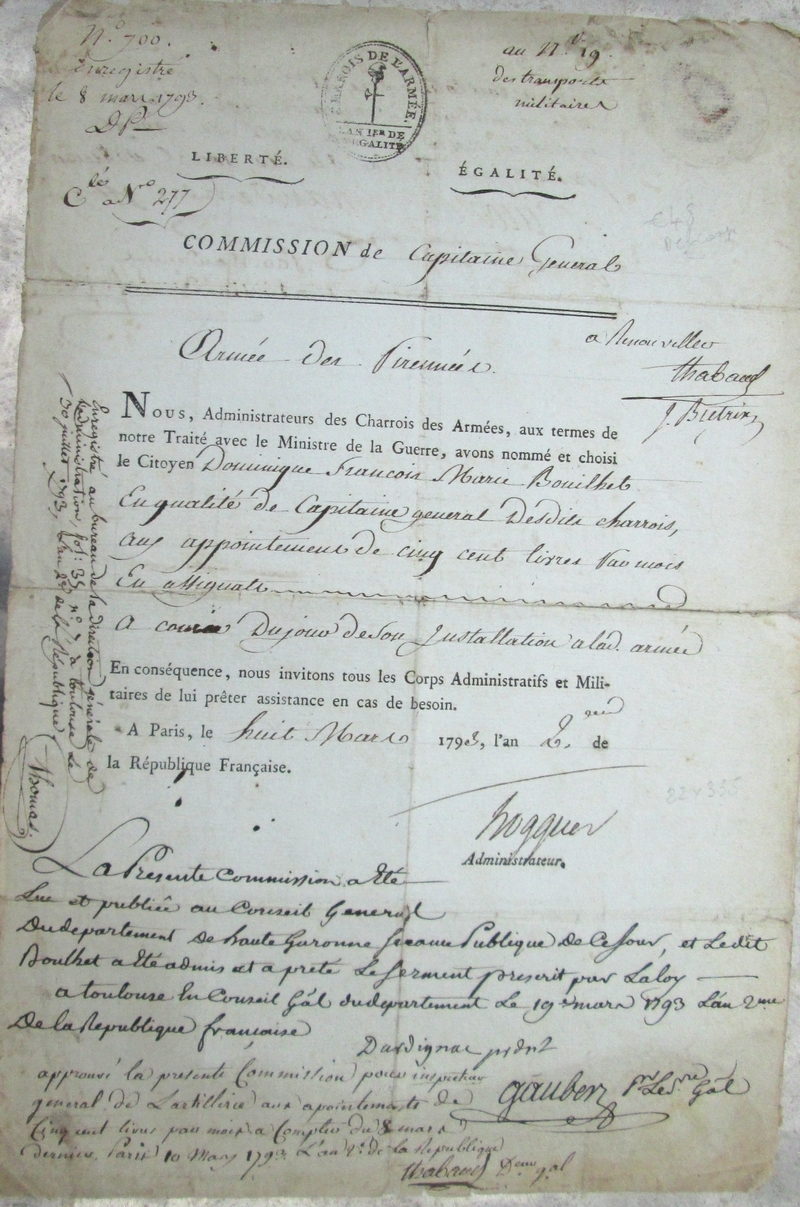 N.° 700.
Enregistré
le 8 mars 1793.
au N.° 19
des transports
militaires
CHAROIS DE L'ARMÉE.
L'AN 1ER DE
L'EGALITÉ
LIBERTÉ.
ÉGALITÉ.
C.lés a N.ro 277
COMMISSION de Capitaine General
Armée des Pirennées.
a Renouveller
thabaud
J. Bietrix
Nous, Administrateurs des Charrois des Armées, aux termes de
notre Traité avec le Ministre de la Guerre, avons nommé et choisi
le Citoyen Dominique Francois Marie Bouilhet
En qualité de Capitaine general Desdits charrois,
aux appointement de cinq cent livres Par mois
En assignats
A Du jour de Son Installation a lad. armée
En conséquence, nous invitons tous les Corps Administratifs et Mili-
taires de lui prêter assistance en cas de besoin.
A Paris, le huit Mars 1793, l'an 2. de
la République Française.
Administrateur.
Enregistré au bureau de la direction générale de
l'administration, fol: 35 n.° 7 à toulouse le
30 juillet 1793, L'an 2.d de la République
Thomas.
La Presente Commission a Eté
Lue et publiée au Conseil General
Du departement De haute Garonne Seance Publique De Ce Jour, et Ledit
Bouilhet a Eté admis et a preté Le Serment prescrit par La loy
a toulouse En Conseil Gâl du departement Le 19 mars 1793 L'an 2.me
De la Republique française
Dardignac prdnt
gauberz Pr Le S.re Gâl
approuvé la presente Commission pour inspecteur
general de L'artillerie aux apointements de
Cinq cent livres par mois a Compter du 8 mars
dernier. Paris 10 May 1793. L'an 2.e de la Republique
thabaud D.eur gal